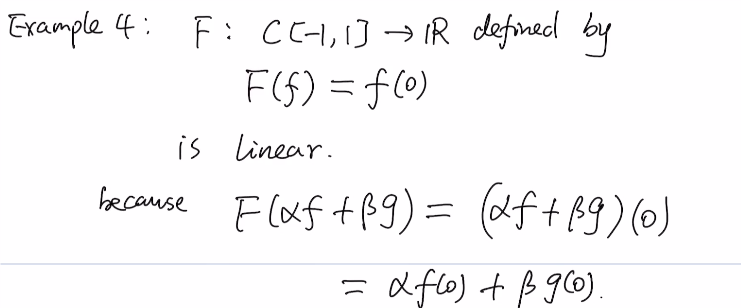 Example 4: F: C[-1,1] → ℝ defined by
F(f) = f(0)
is linear.
because F(αf + βg) = (αf + βg)(0)
= αf(0) + βg(0).